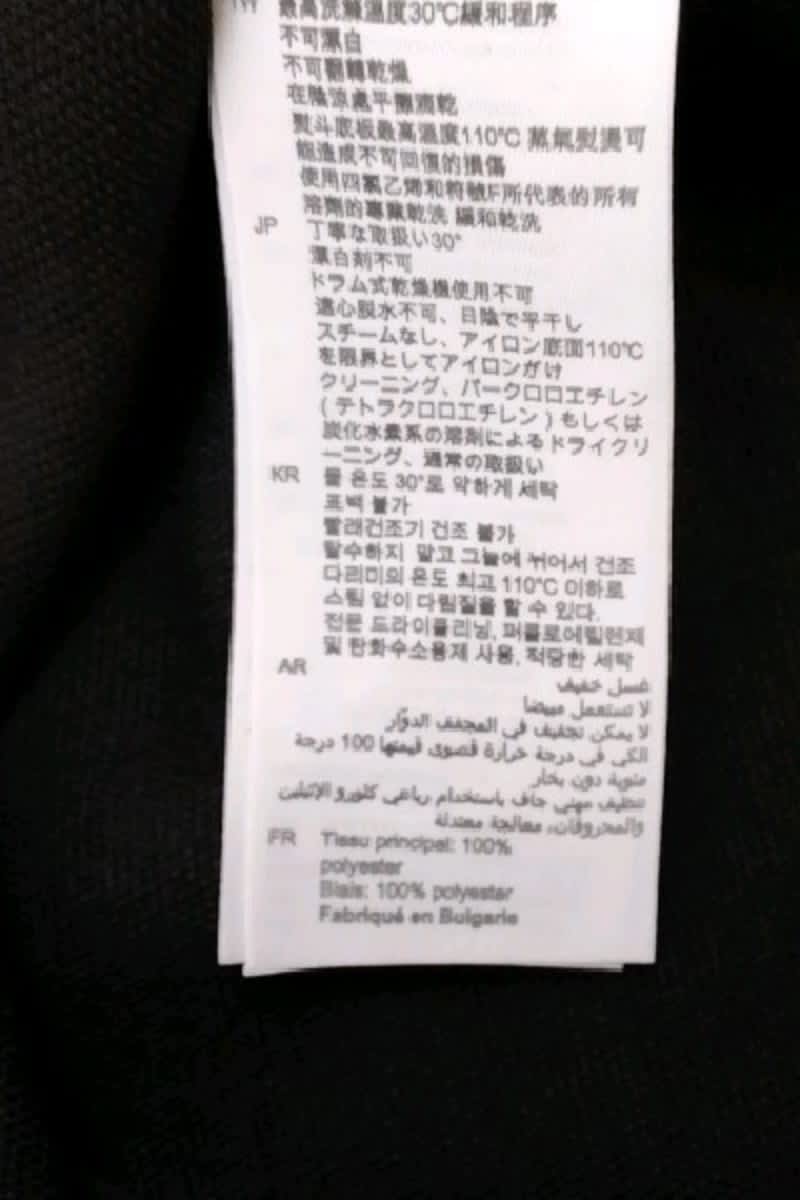 TW 最高洗滌溫度30℃緩和程序
不可漂白
不可翻轉乾燥
在陰涼處平攤晾乾
熨斗底板最高溫度110℃ 蒸氣熨燙可
能造成不可回復的損傷
使用四氯乙烯和符號F所代表的所有
溶劑的專業乾洗 緩和乾洗
JP 丁寧な取扱い30°
漂白剤不可
ドラム式乾燥機使用不可
遠心脱水不可、日陰で平干し
スチームなし、アイロン底面110℃
を限界としてアイロンがけ
クリーニング、パークロロエチレン
(テトラクロロエチレン)もしくは
炭化水素系の溶剤によるドライクリ
ーニング、通常の取扱い
KR 물 온도 30°로 약하게 세탁
표백 불가
빨래건조기 건조 불가
탈수하지 말고 그늘에 뉘어서 건조
다리미의 온도 최고 110℃ 이하로
스팀 없이 다림질을 할 수 있다.
전문 드라이클리닝, 퍼클로에틸렌제
및 탄화수소용제 사용, 적당한 세탁
AR
غسل خفيف
لا تستعمل مبيضا
لا يمكن تجفيف في المجفف الدوّار
الكي في درجة حرارة قصوى قيمتها 100 درجة
مئوية دون بخار
تنظيف مهني جاف باستخدام رباعي كلورو الإثيلين
والمحروقات، معالجة معتدلة
FR Tissu principal: 100%
polyester
Biais: 100% polyester
Fabriqué en Bulgarie